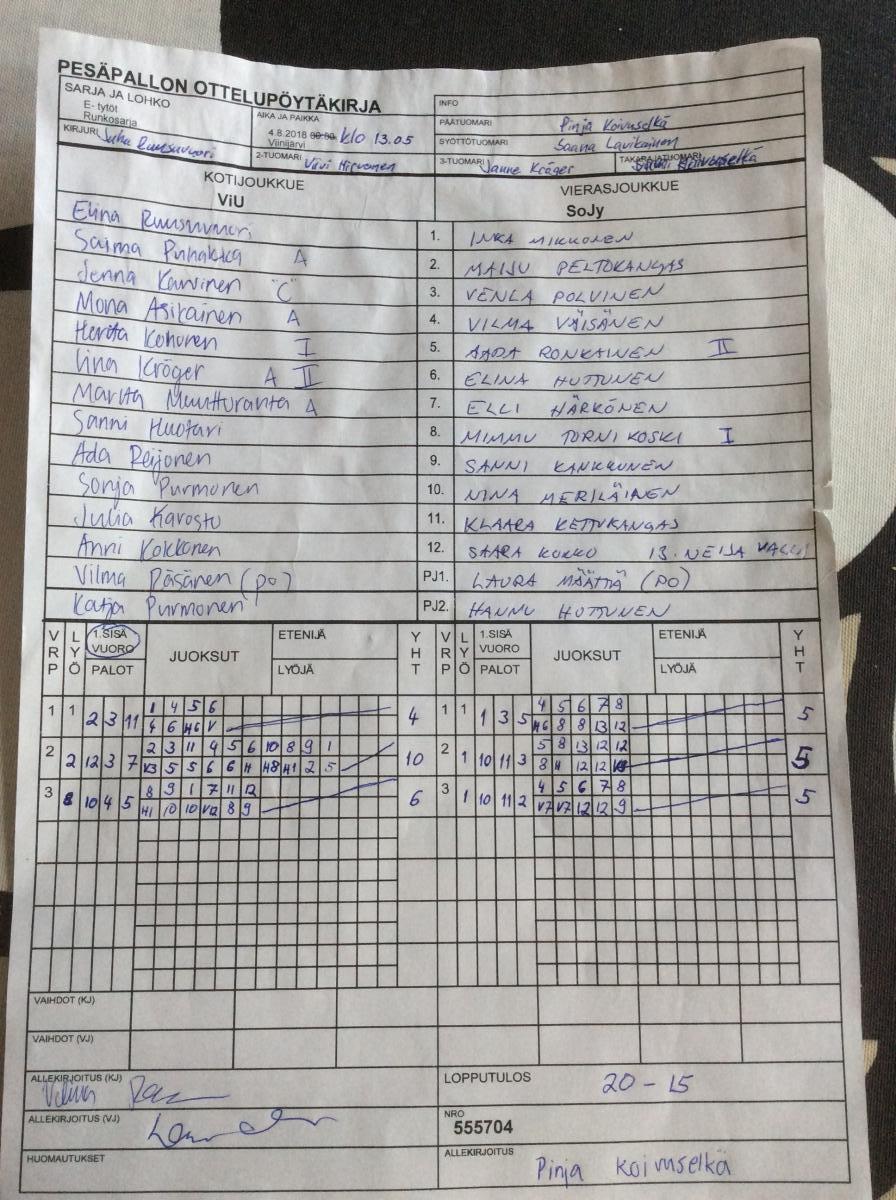 PESÄPALLON OTTELUPÖYTÄKIRJA
SARJA JA LOHKO
E- tytöt
Runkosarja
AIKA JA PAIKKA
4.8.2018 00:00 klo 13.05
Viinijärvi
INFO
PÄÄTUOMARI Pinja Koivuselkä
SYÖTTÖTUOMARI Saana Lavikainen
KIRJURI Juha Ruusuvuori
2-TUOMARI Vivi Hirvonen
3-TUOMARI Janne Kröger
TAKARAJATUOMARI Koivuselkä
KOTIJOUKKUE
ViU
VIERASJOUKKUE
SoJy
Elina Ruusuvuori 1. INKA MIKKONEN
Saima Puhakka A 2. MAIJU PELTOKANGAS
Jenna Karvinen "C" 3. VENLA POLVINEN
Mona Asikainen A 4. VILMA VÄISÄNEN
Hertta Kohonen I 5. AADA RONKAINEN II
Iina Kröger A II 6. ELINA HUTTUNEN
Maritta Muutturanta A 7. ELLI HÄRKÖNEN
Sanni Huotari 8. MIMMU TORNIKOSKI I
Ada Reijonen 9. SANNI KANKKUNEN
Sonja Purmonen 10. NINA MERILÄINEN
Julia Karosto 11. KLAARA KETTUKANGAS
Anni Kokkonen 12. SAARA KOKKO 13. NEIJA
Vilma Räsänen (po) PJ1. LAURA MÄÄTTÄ (PO)
Katja Purmonen PJ2. HANNU HUTTUNEN
VRP LYÖ 1.SISÄ VUORO PALOT JUOKSUT ETENIJÄ LYÖJÄ YHT VRP LYÖ 1.SISÄ VUORO PALOT JUOKSUT ETENIJÄ LYÖJÄ YHT
1 1 2 3 11 1 4 5 6 4 1 1 1 3 5 4 5 6 7 8 5
4 6 H6 V H6 8 8 13 12
2 2 12 3 7 2 3 11 4 5 6 10 8 9 1 10 2 1 10 11 3 5 8 13 12 12 5
K3 5 5 6 6 H H8 H1 2 5 8 H 12 12
3 10 4 5 8 9 1 7 11 12 6 3 1 10 11 2 4 5 6 7 8 5
H1 10 10 V12 8 9 V7 V7 12 12 9
VAIHDOT (KJ)
VAIHDOT (VJ)
ALLEKIRJOITUS (KJ) Vilma
LOPPUTULOS 20 - 15
ALLEKIRJOITUS (VJ)
NRO
555704
HUOMAUTUKSET
ALLEKIRJOITUS Pinja Koivuselkä